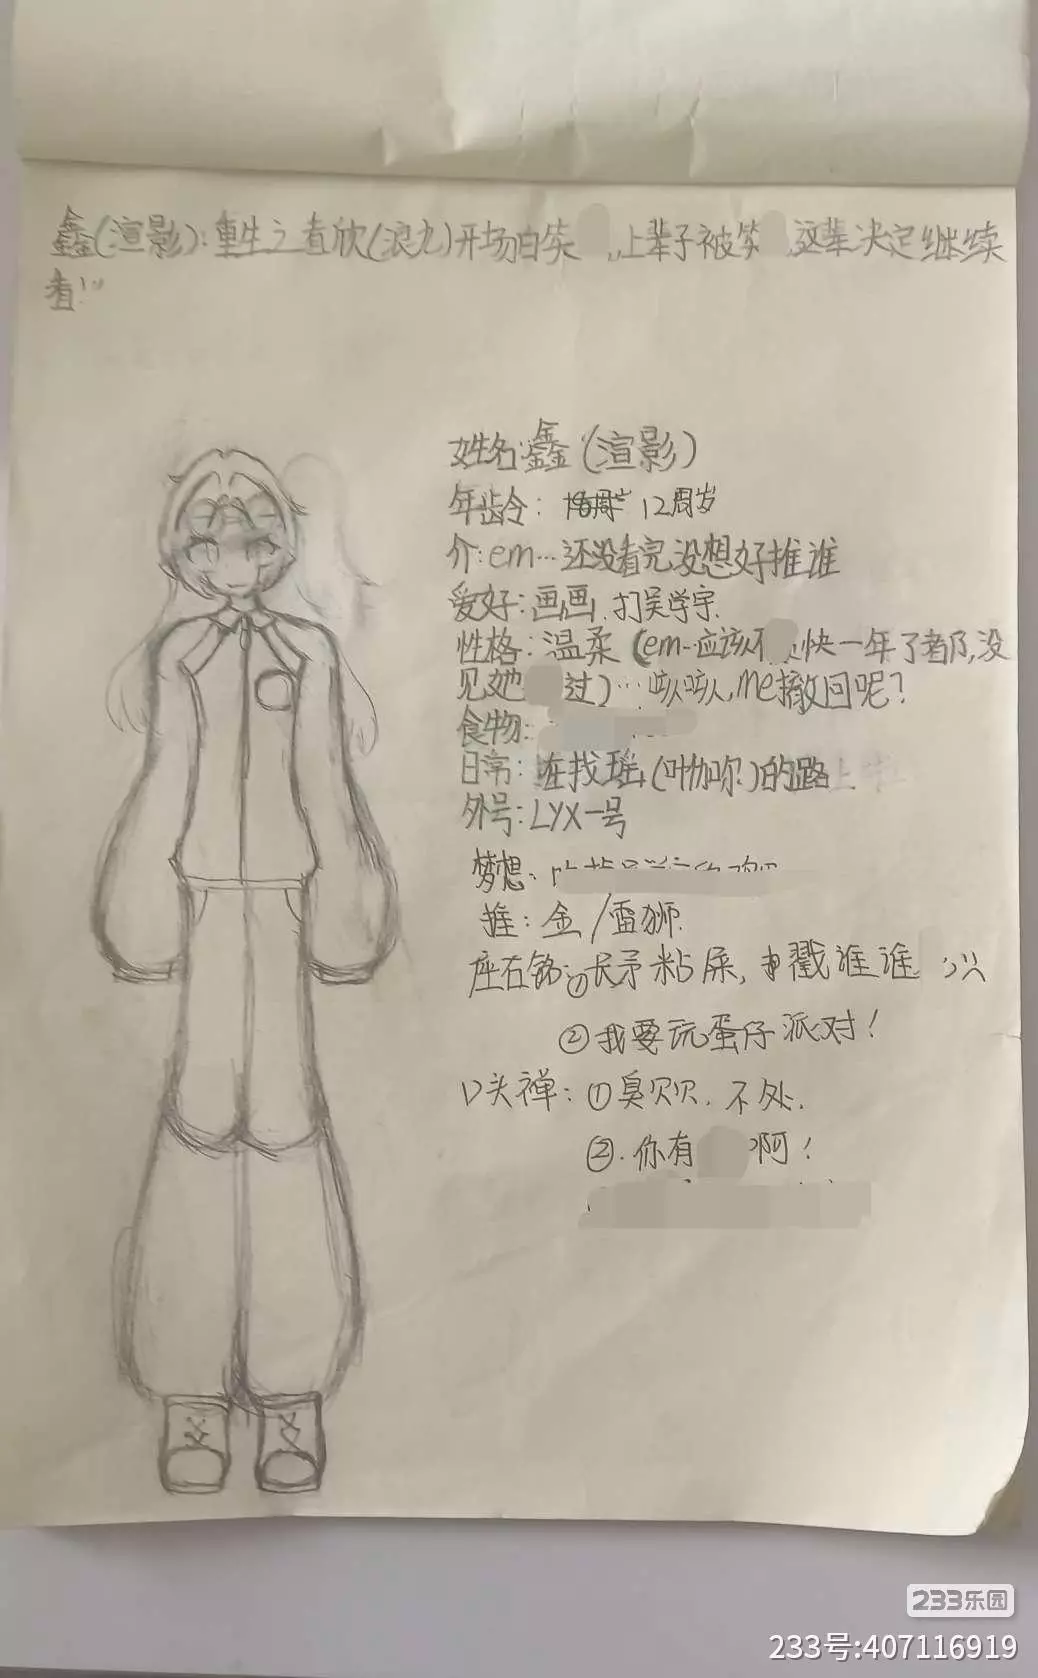 鑫(渲影):重生之者欣(浪九)开场白笑 ,,上辈子被笑 ,这辈决定继续
者!"
姓名:鑫(渲影)
年龄令: 12周岁
介:em…还没看完没想好推谁
爱好:画画.打吴学宇.
性格:温柔(em-应该不 快一年了都,没
见她 过)…:咳咳,me撤回呢?
食物:
日常:在找瑶(叶伽)的路
外号:LYX一号
梦想:
推:金/雷狮.
座右铭:①长矛粘屎,戳谁谁
②我要玩蛋仔派对!
口头禅:①臭贝贝.不处.
②.你有 啊!
233乐园
233号:407116919